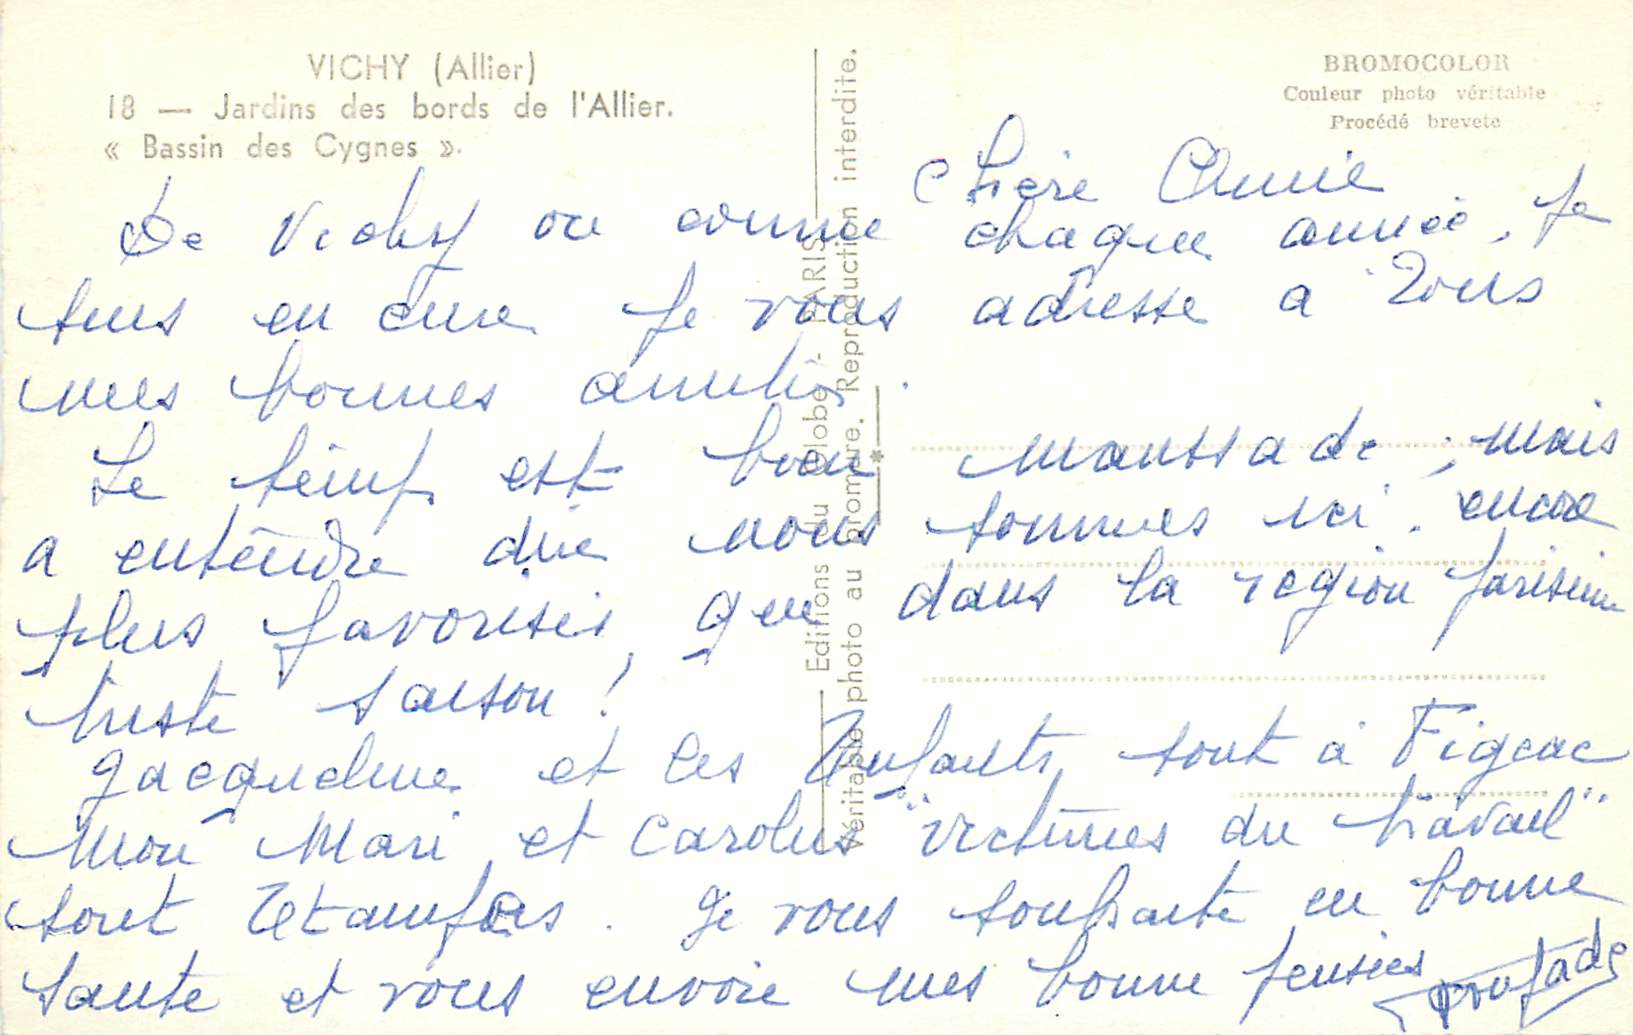 VICHY (Allier)
18 — Jardins des bords de l'Allier.
« Bassin des Cygnes ».
BROMOCOLOR
Couleur photo véritable
Procédé breveté
Editions du Globe - PARIS
Véritable photo au bromure. Reproduction interdite.
Chère Annie
De Vichy ou comme chaque année, je
suis en cure je vous adresse a Tous
mes bonnes amitiés.
Le temps est bien maussade ; mais
a entendre dire nous sommes ici encore
plus favorisés, que dans la region parisienne
triste saison !
Jacqueline et les Enfants sont à Figeac
Mon Mari et Carolus "victimes du travail"
sont Etampois. Je vous souhaite en bonne
sante et vous envoie mes bonne pensées